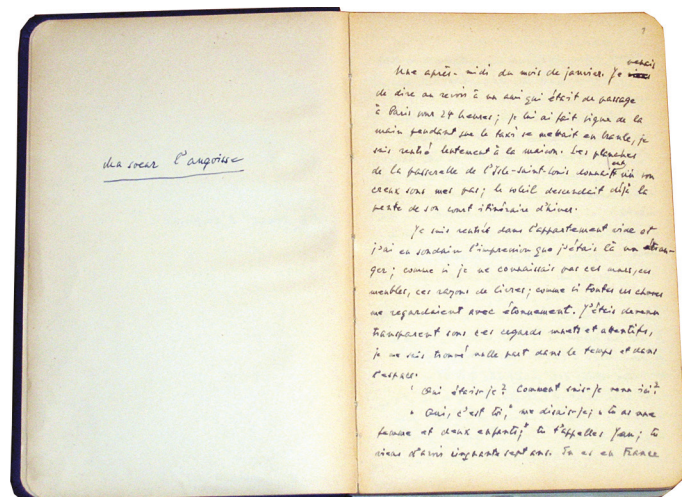 Ma soeur l'angoisse
1
Une après-midi du mois de janvier. Je venais
de dire au revoir à un ami qui était de passage
à Paris pour 24 heures; je lui ai fait signe de la
main pendant que le taxi se mettait en branle, je
suis rentré lentement à la maison. Les planches
de la passerelle de l'Isle-Saint-Louis ont un son
creux sous mes pas; le soleil descendait déjà la
pente de son court itinéraire d'hiver.
Je suis rentré dans l'appartement vide et
j'ai eu soudain l'impression que j'étais là un étran-
ger; comme si je ne connaissais pas ces murs, ces
meubles, ces rayons de livres; comme si toutes ces choses
me regardaient avec étonnement. J'étais devenu
transparent sous ces regards muets et attentifs,
je me suis trouvé nulle part dans le temps et dans
l'espace.
" Qui étais-je? Comment suis-je venu ici?
" Oui, c'est toi," me disais-je; " tu as une
femme et deux enfants," tu t'appelles Jean; tu
viens d'avoir cinquante sept ans. Tu es en France